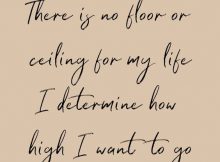 There is no floor or
ceiling for my life
I determine how
high I want to go